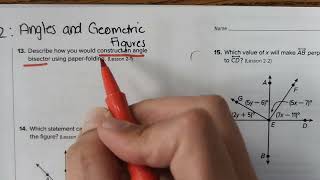 2: Angles and Geometric
Figures
Name
13. Describe how you would construct an angle
bisector using paper-folding. (Lesson 2-1)
14. Which statement ca
the figure?
15. Which value of x will make AB perp
to CD? (Lesson 2-2)
A
G
(5y − 6)°
(5x − 7)°
(2y + 5)°
(7x − 11)°
E
B